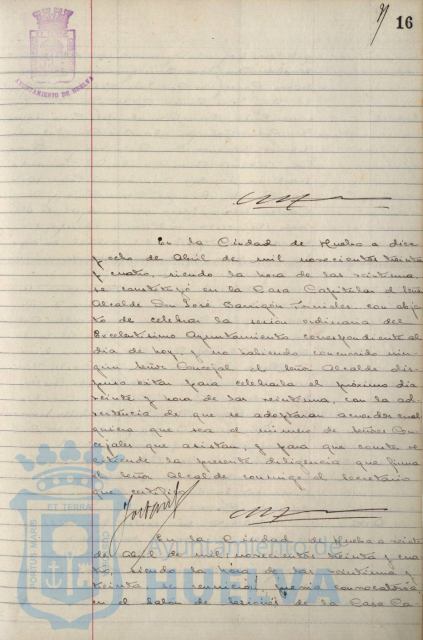 16
AYUNTAMIENTO DE HUELVA
En la Ciudad de Huelva a diez
y ocho de Abril de mil novecientos treinta
y cuatro, siendo la hora de las veintiuna
se constituyó en la Casa Capitular el Señor
Alcalde Don José Barrigón Fornieles con obje
to de celebrar la sesión ordinaria del
Excelentísimo Ayuntamiento correspondiente al
día de hoy, y no habiendo concurrido nin
gún Señor Concejal el Señor Alcalde dis
puso citar para celebrarla el próximo día
veinte y hora de las veintiuna, con la ad
vertencia de que se adoptarán acuerdos cual
quiera que sea el número de Señores Con
cejales que asistan, y para que conste se
extiende la presente diligencia que firma
el Señor Alcalde conmigo el Secretario
que certifico.
En la Ciudad de Huelva a veinte
de Abril de mil novecientos treinta y cua
tro, siendo la hora de las veintiuna y
treinta se reunieron previa convocatoria
en el Salón de sesiones de la Casa Ca
Ayuntamiento de
HUELVA
PORTUS MARIS
ET TERRAE
CUSTODIA